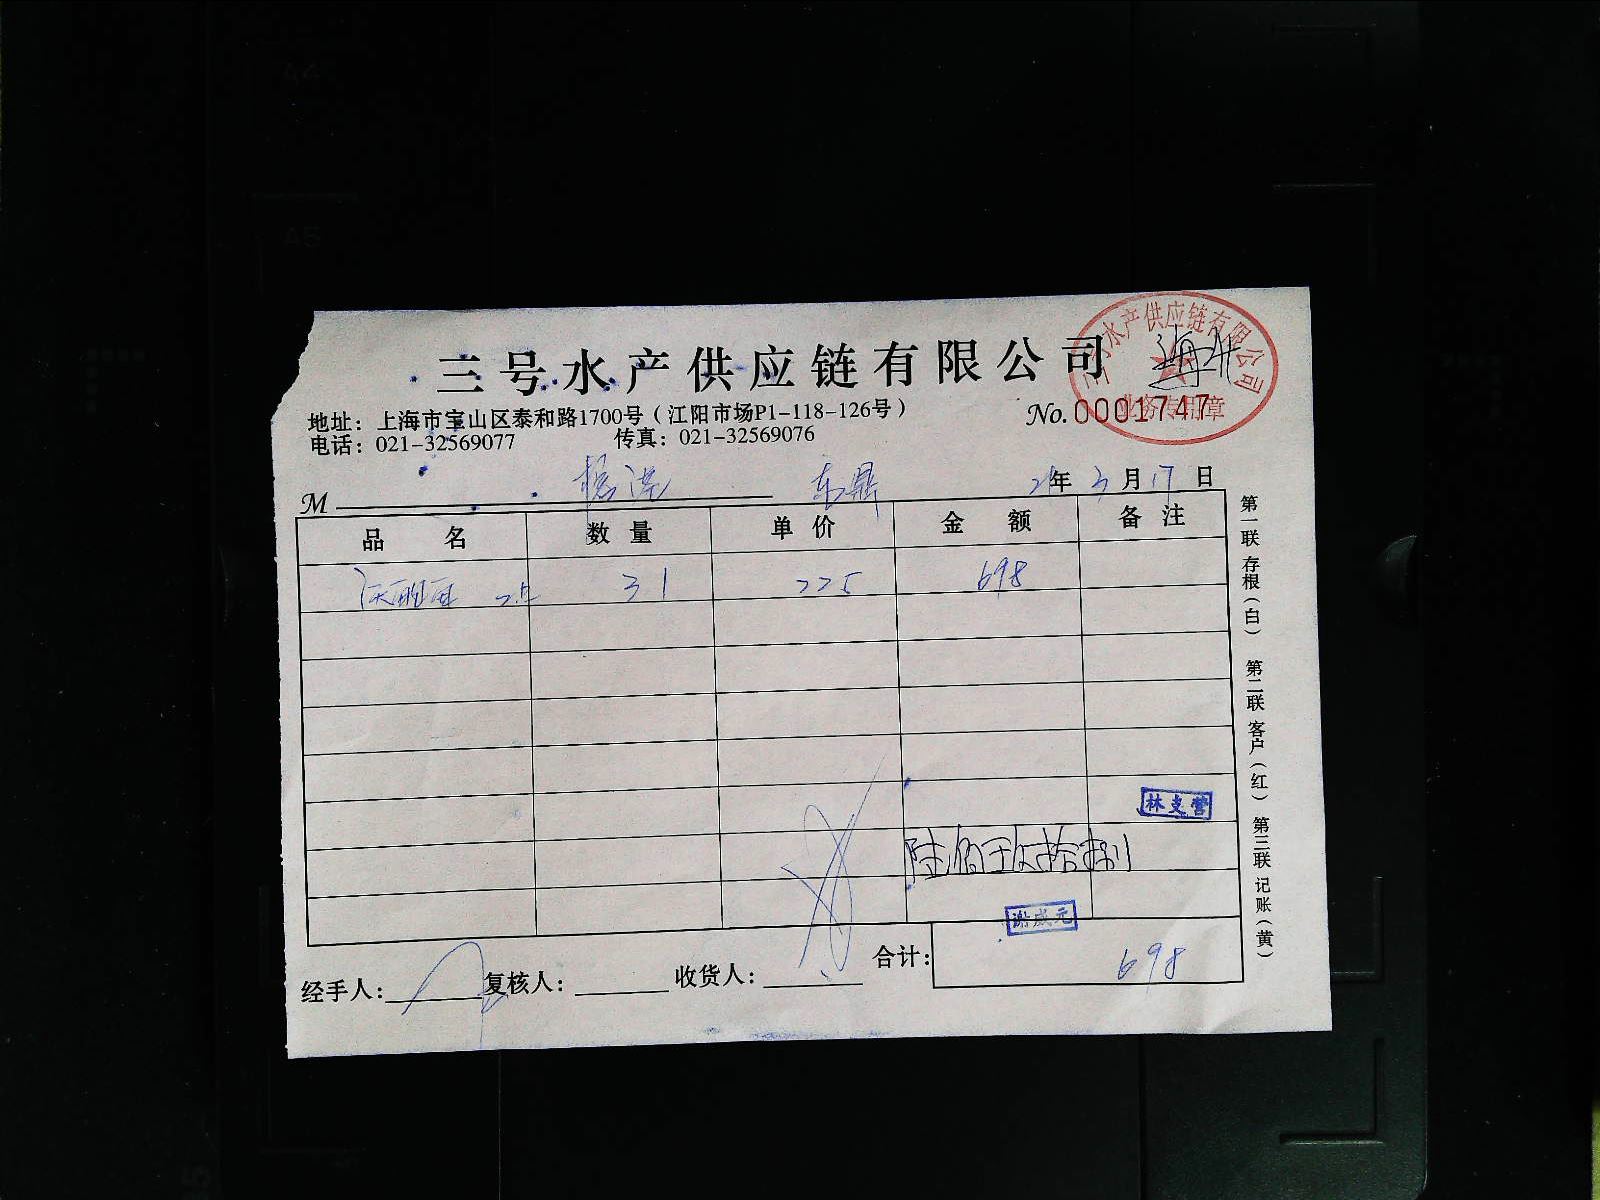 三号水产供应链有限公司
三号水产供应链有限公司
业务专用章
地址：上海市宝山区泰和路1700号（江阳市场P1-118-126号）
No.0001747
电话：021-32569077 传真：021-32569076
M 东鼎 21年3月17日
品名 数量 单价 金额 备注
31 225 698
林支营
陆佰玖拾捌
谢成元
合计： 698
经手人： 复核人： 收货人：
第一联 存根（白） 第二联 客户（红） 第三联 记账（黄）
A5